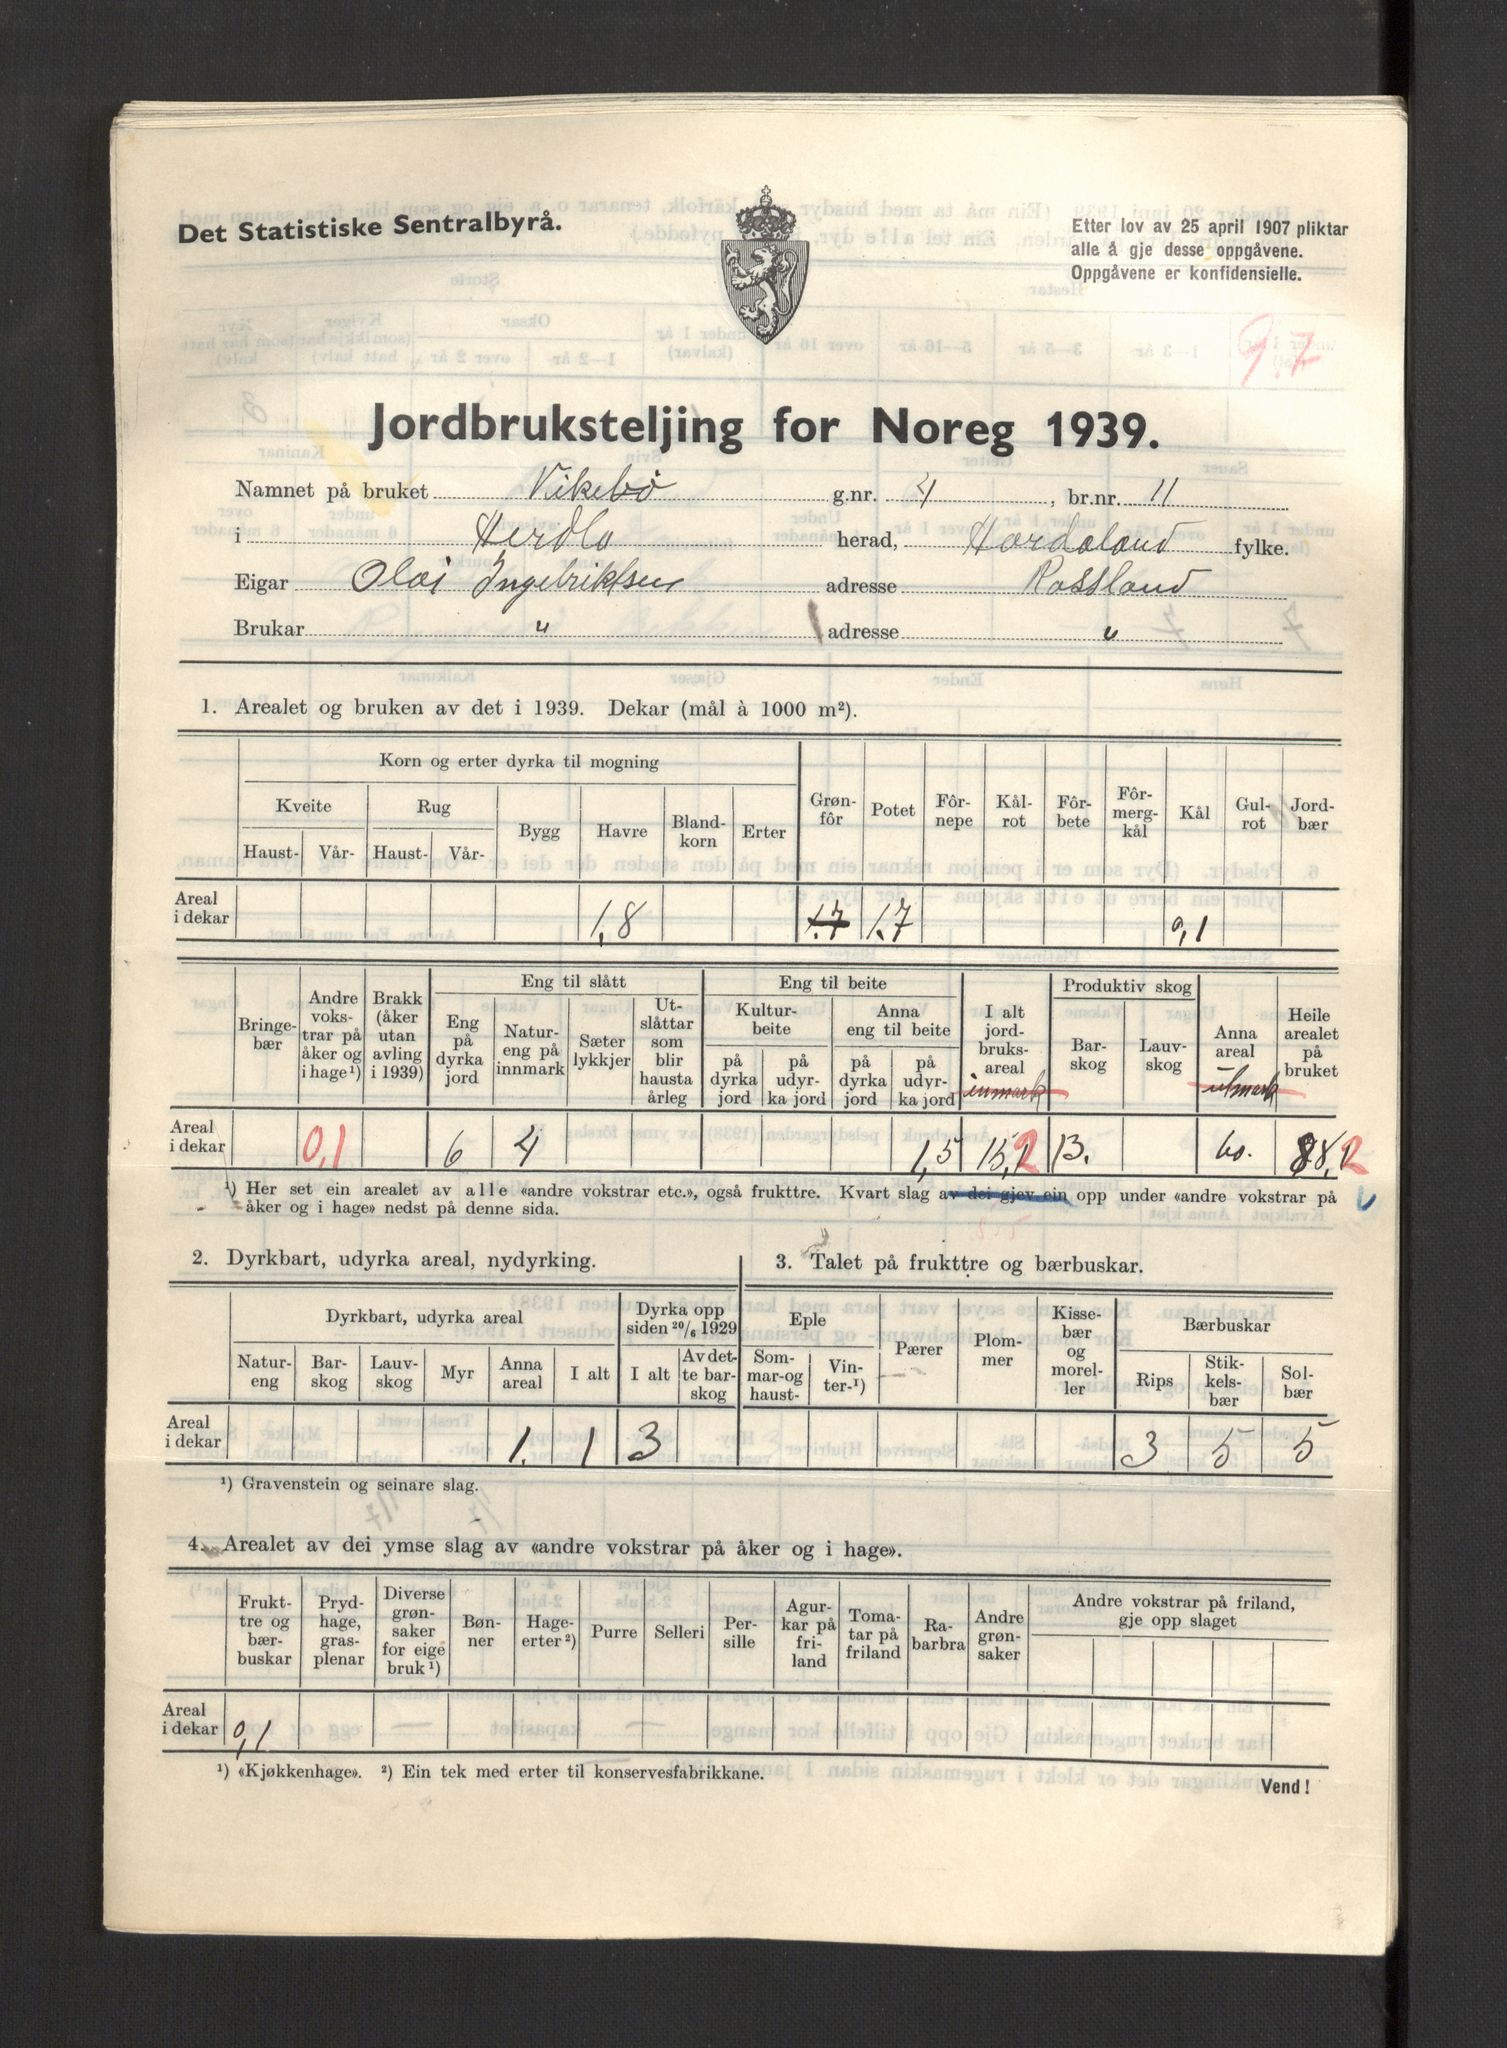 Det Statistiske Sentralbyrå.
Etter lov av 25 april 1907 pliktar
alle å gje desse oppgåvene.
Oppgåvene er konfidensielle.
9.7
Jordbruksteljing for Noreg 1939.
Namnet på bruket Vikebö g.nr. 4, br.nr. 11
i Herdla herad, Hordaland fylke.
Eigar Olai Ingebriktsen adresse Rossland
Brukar " adresse "
1. Arealet og bruken av det i 1939. Dekar (mål à 1000 m²).
Korn og erter dyrka til mogning
Kveite Rug Bygg Havre Blandkorn Erter Grønfôr Potet Fôrnepe Kålrot Fôrbete Fôrmergkål Kål Gulrot Jordbær
Haust- Vår- Haust- Vår-
Areal i dekar 1,8 1.7 1.7 0,1
Bringebær Andre vokstrar på åker og i hage¹) Brakk (åker utan avling i 1939) Eng til slått Eng til beite I alt jordbruksareal Produktiv skog Anna areal Heile arealet på bruket
Eng på dyrka jord Natureng på innmark Sæterlykkjer Utslåttar som blir hausta årleg Kulturbeite Anna eng til beite Barskog Lauvskog
på dyrka jord på udyrka jord på dyrka jord på udyrka jord inmark utmark
Areal i dekar 0,1 6 4 1,5 15,2 13. 60. 88,2
¹) Her set ein arealet av alle «andre vokstrar etc.», også frukttre. Kvart slag av dei gjev ein opp under «andre vokstrar på
åker og i hage» nedst på denne sida.
2. Dyrkbart, udyrka areal, nydyrking.
Dyrkbart, udyrka areal Dyrka opp siden 20/6 1929
Natureng Barskog Lauvskog Myr Anna areal I alt I alt Av dette barskog
Areal i dekar 1. 1 3
3. Talet på frukttre og bærbuskar.
Eple Pærer Plommer Kissebær og moreller Bærbuskar
Sommar- og haust- Vinter-¹) Rips Stikkelsbær Solbær
3 5 5
¹) Gravenstein og seinare slag.
4. Arealet av dei ymse slag av «andre vokstrar på åker og i hage».
Frukttre og bærbuskar Prydhage, grasplenar Diverse grønsaker for eige bruk¹) Bønner Hageerter²) Purre Selleri Persille Agurkar på friland Tomatar på friland Rabarbra Andre grønsaker Andre vokstrar på friland, gje opp slaget
Areal i dekar 0,1
¹) «Kjøkkenhage». ²) Ein tek med erter til konservesfabrikkane.
Vend!